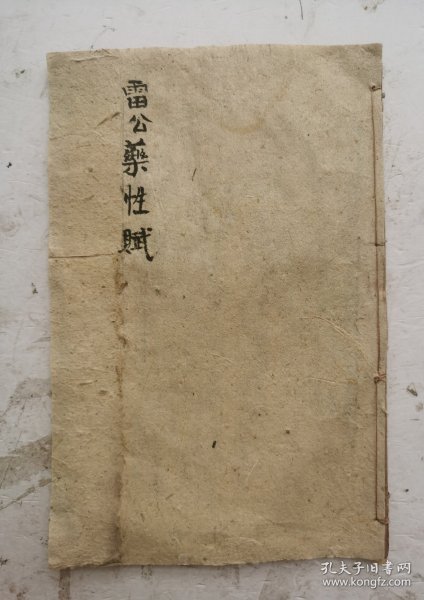 雷公藥性賦
孔夫子旧书网
www.kongfz.com